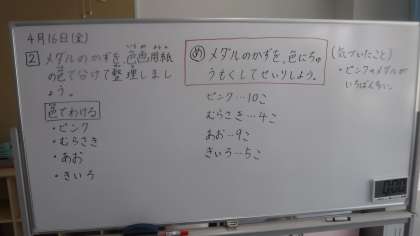 4月16日(金)
2 メダルのかずを、色画用紙
いろ が ようし
の色でわけて整理しまし
ょう。
色でわける
・ピンク
・むらさき
・あお
・きいろ
め メダルのかずを、色にちゅ
うもくしてせいりしよう。
ピンク…10こ
むらさき…4こ
あお…9こ
きいろ…5こ
(気づいたこと)
・ピンクのメダルが
いちばん多い。